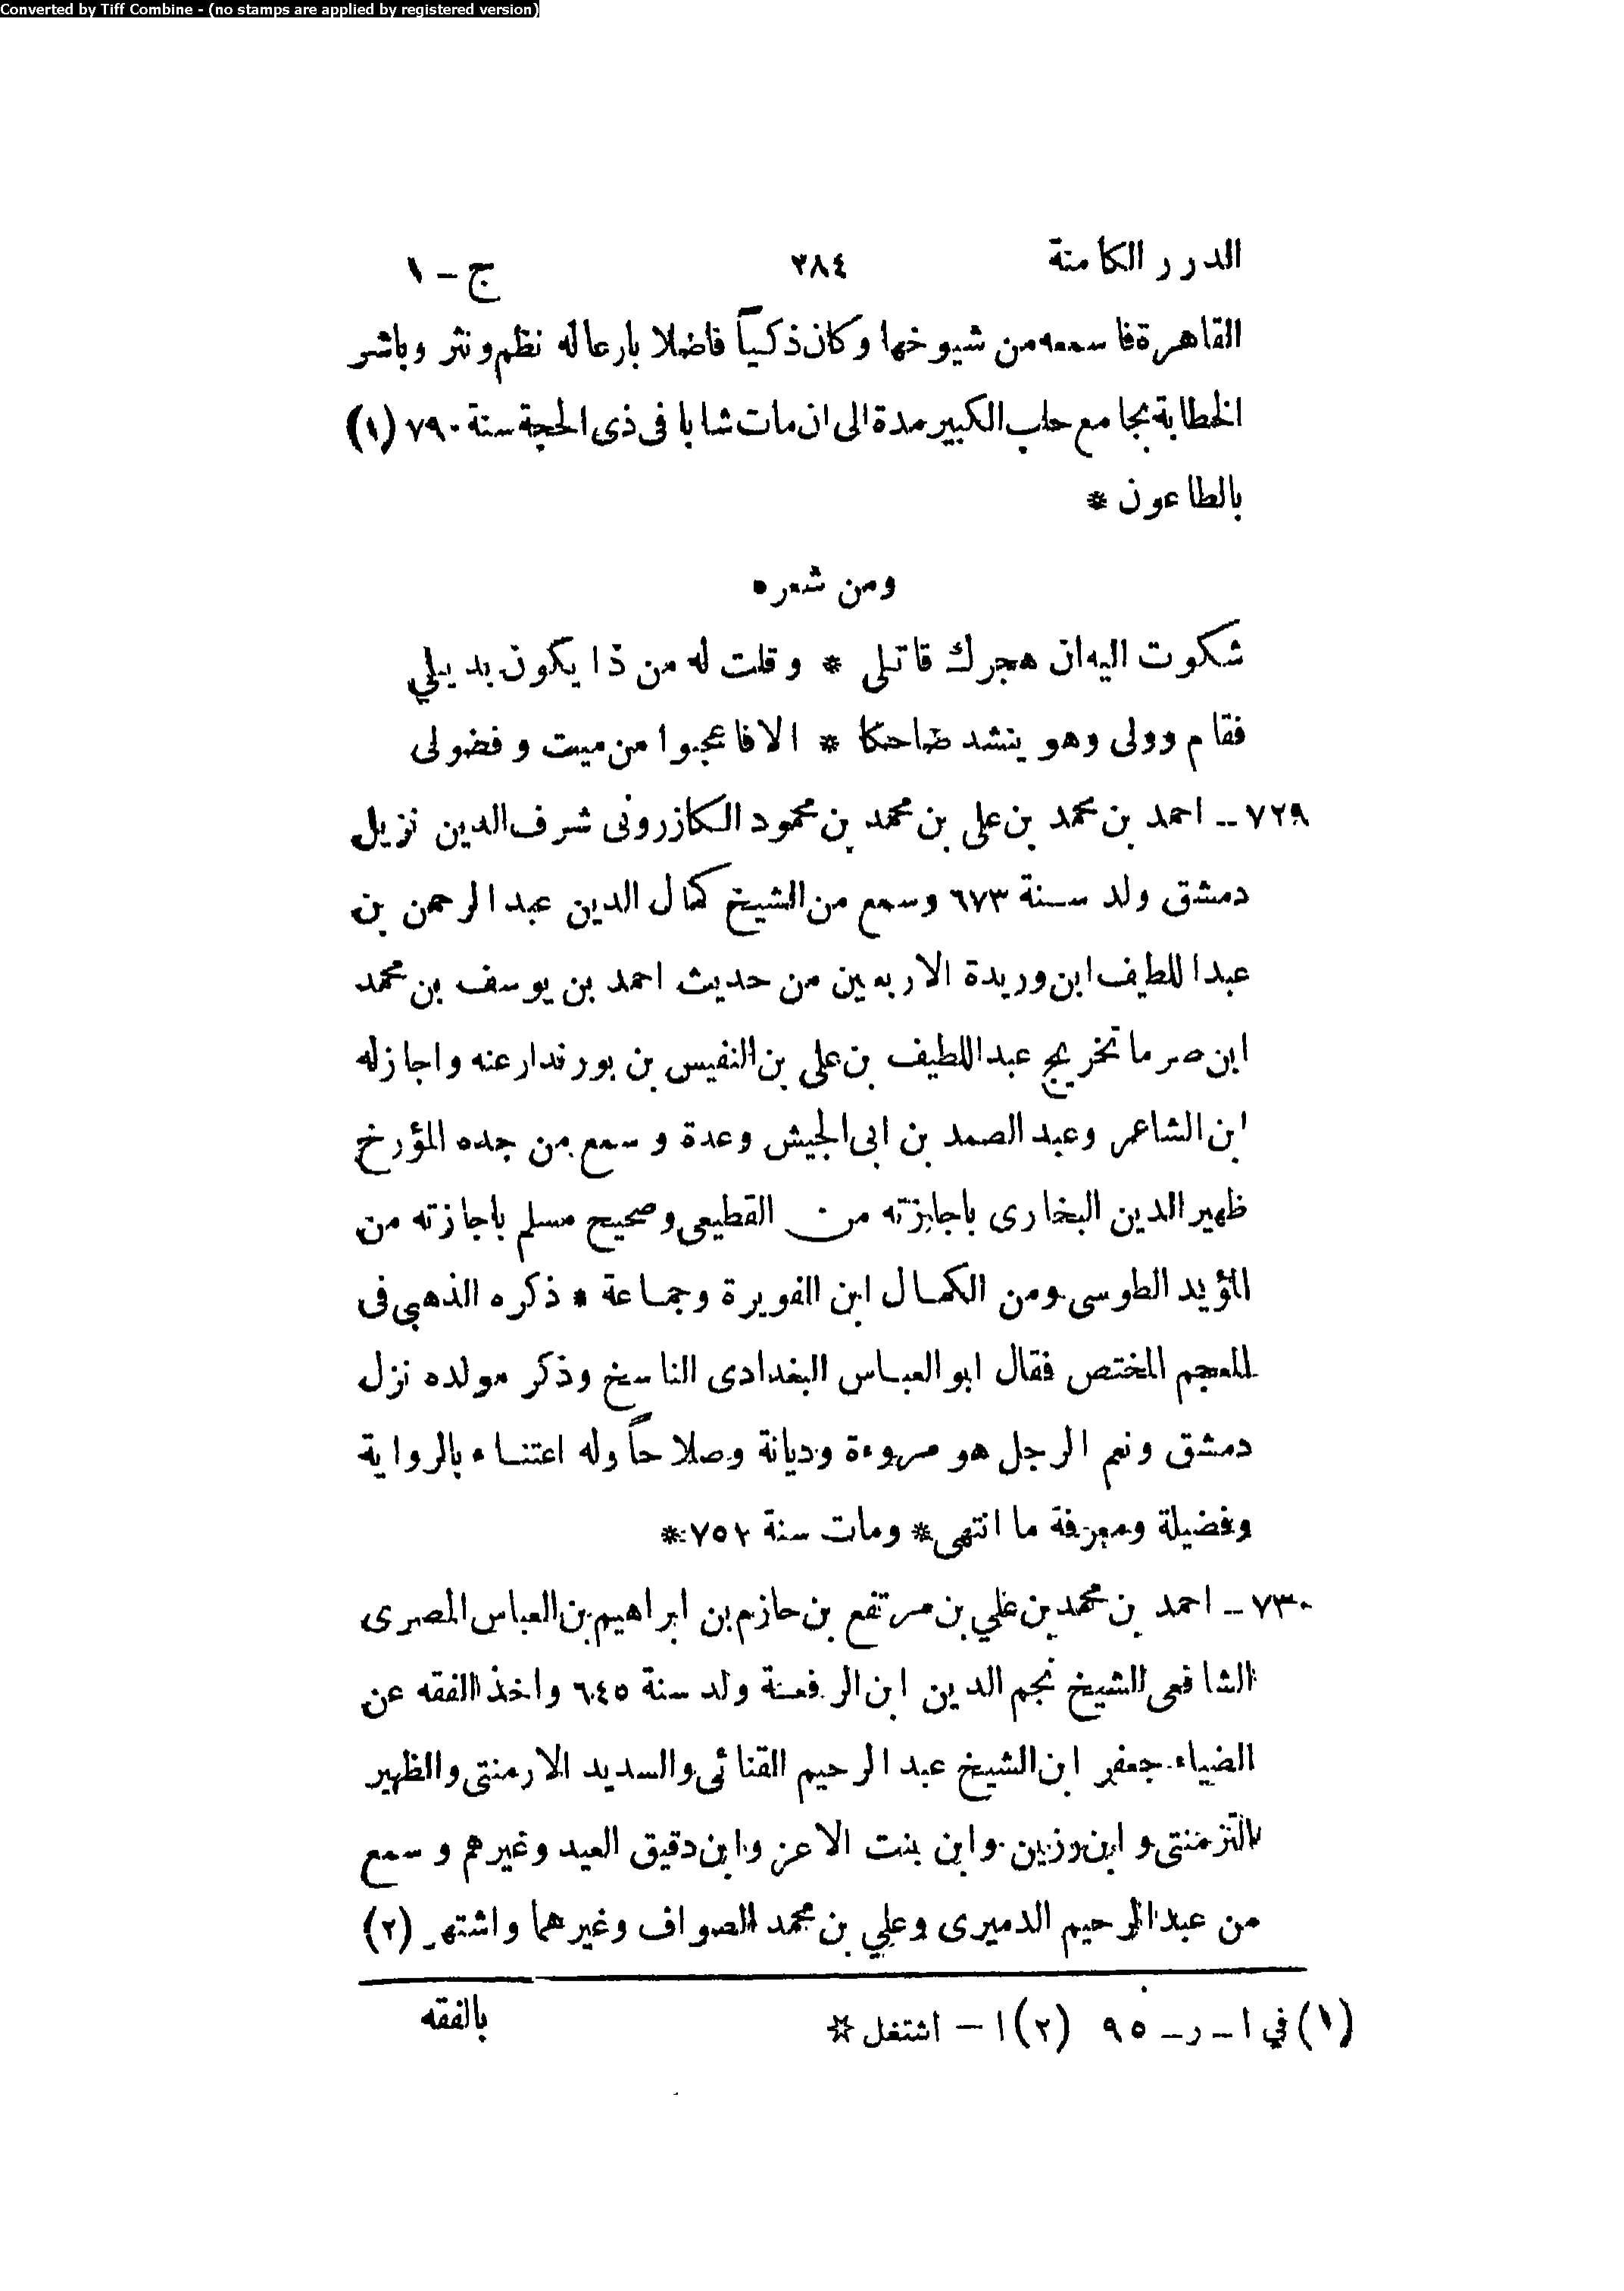 Converted by Tiff Combine - (no stamps are applied by registered version)
الدرر الكامنة ٢٨٤ ج - ١
القاهرة فاسمعه من شيوخها وكان ذكياً فاضلا بارعا له نظم ونثر وباشر
الخطابة بجامع حلب الكبير مدة الى ان مات شابا فى ذى الحجة سنة ٧٩٠ (١)
بالطاعون *
ومن شعره
شكوت اليه ان هجرك قاتلى * وقلت له من ذا يكون بديلي
فقام وولى وهو ينشد ضاحكا * الا فاعجبوا من ميت وفضولى
٧٢٩ - احمد بن محمد بن على بن محمد بن محمود الكازرونى شرف الدين نزيل
دمشق ولد سنة ٦٧٣ وسمع من الشيخ كمال الدين عبد الرحمن بن
عبد اللطيف ابن وريدة الاربعين من حديث احمد بن يوسف بن محمد
ابن صرما تخريج عبد اللطيف بن على بن النفيس بن بورندار عنه واجاز له
ابن الشاعر وعبد الصمد بن ابى الجيش وعدة وسمع من جده المؤرخ
ظهير الدين البخارى باجازته من القطيعى وصحيح مسلم باجازته من
المؤيد الطوسى ومن الكمال ابن الفويرة وجماعة * ذكره الذهبى فى
المعجم المختص فقال ابو العباس البغدادى الناسخ وذكر مولده نزل
دمشق ونعم الرجل هو مروءة وديانة وصلاحاً وله اعتناء بالرواية
وفضيلة ومعرفة ما انتهى * ومات سنة ٧٥٢ *
٧٣٠ - احمد بن محمد بن علي بن مرتفع بن حازم بن ابراهيم بن العباس المصرى
الشافعى الشيخ نجم الدين ابن الرفعة ولد سنة ٦٤٥ واخذ الفقه عن
الضياء جعفر ابن الشيخ عبد الرحيم القنائى والسديد الارمنتى والظهير
التزمنتى و ابن رزين وابن بنت الاعز وابن دقيق العيد وغيرهم وسمع
من عبد الرحيم الدميرى وعلي بن محمد الصواف وغيرهما واشتهر (٢)
بالفقه
(١) في ا - ر - ٩٥ (٢) ا - اشتغل ☆